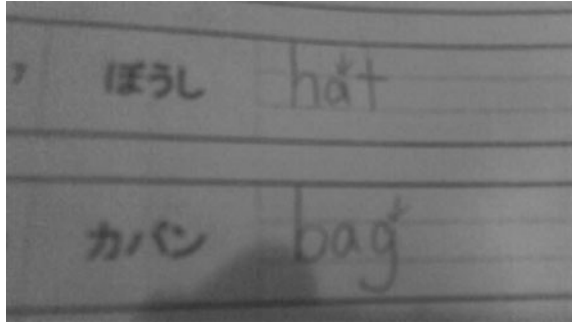 ぼうし hat
カバン bag